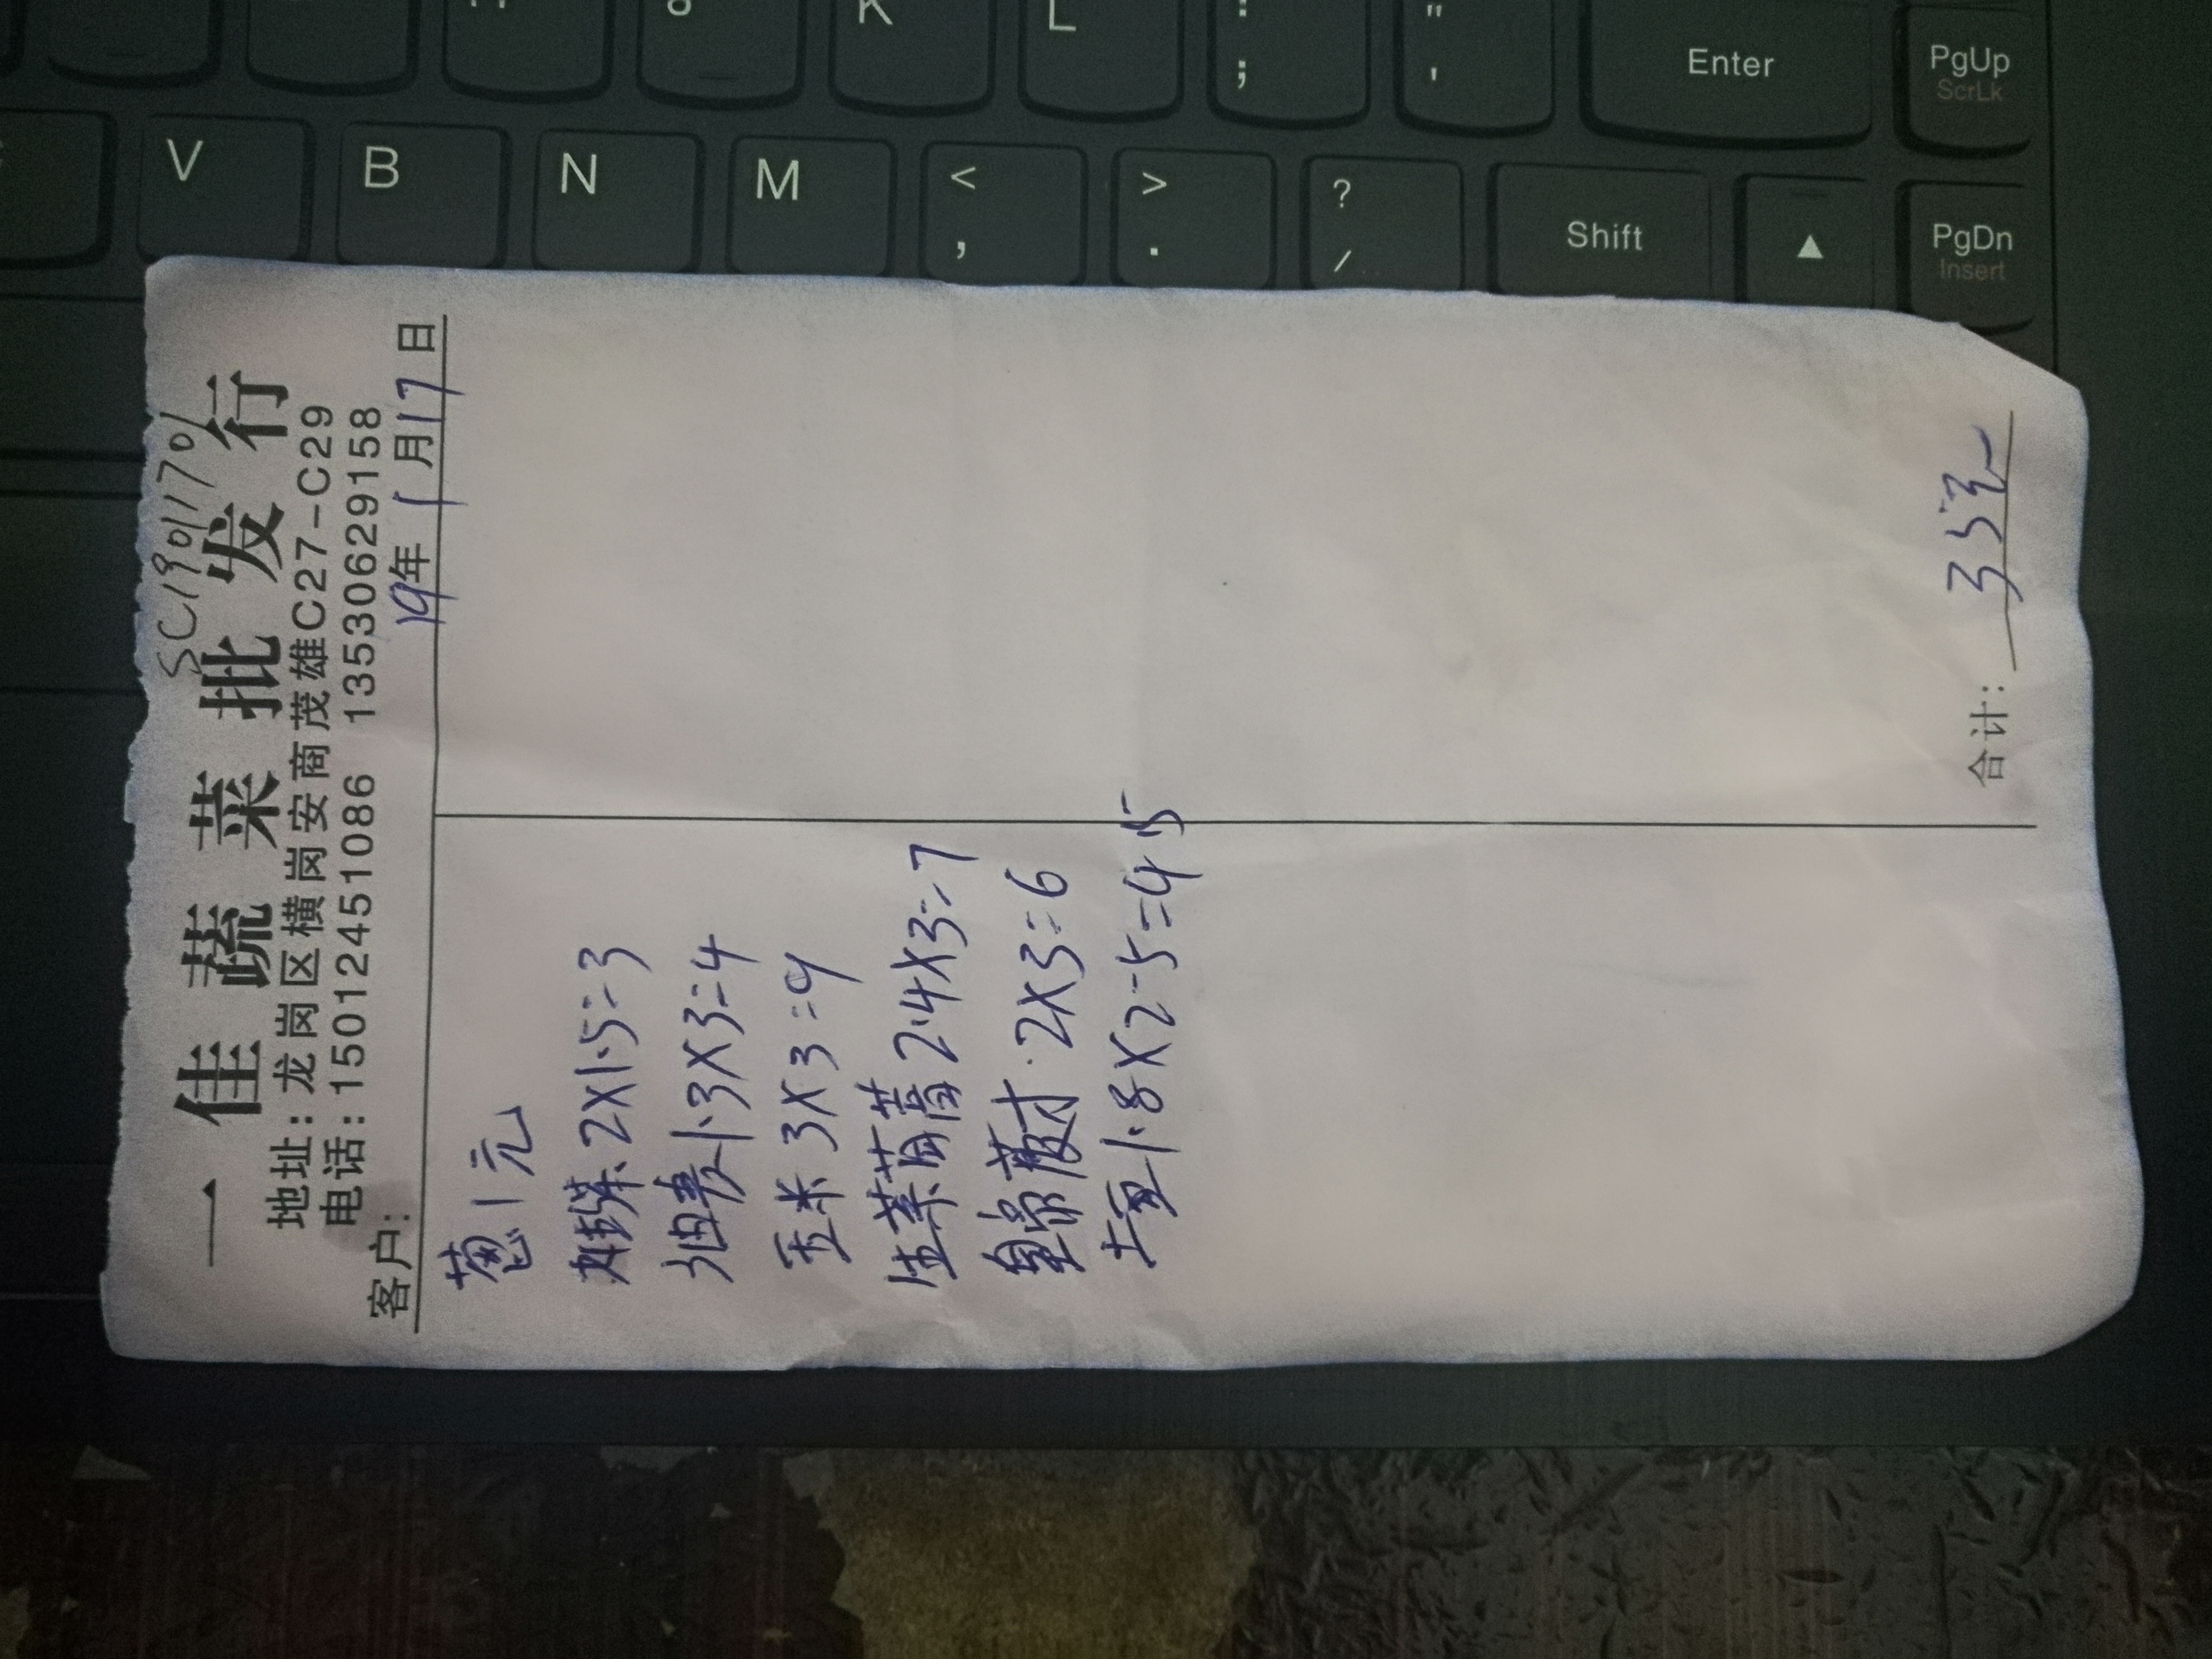 SC19011701
一佳蔬菜批发行
地址：龙岗区横岗安商茂雄C27-C29
电话：15012451086 13530629158
客户：
19年1月17日
葱1元
娃菜 2X1.5=3
油麦1.3X3=4
玉米 3X3=9
生菜 2.4X3=7
皇帝 2X3=6
土豆1.8X2-5=4.5
合计：35元
V
B
N
M
K
L
< ,
> .
:
;
? /
" '
Shift
Enter
PgUp
ScrLk
PgDn
Insert